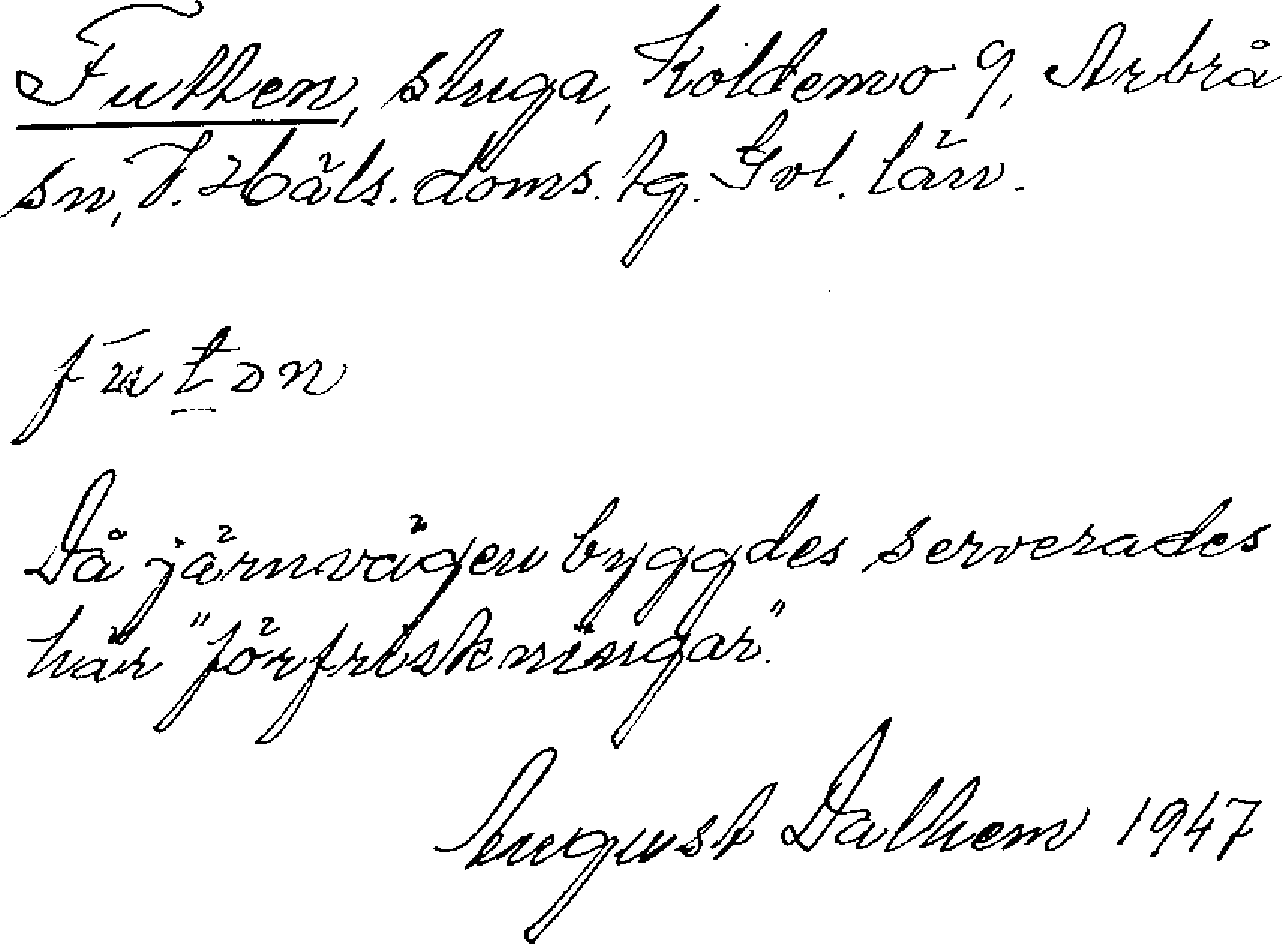 Futten, stuga, Koldemo 9, Arbrå
sn, V. Häls. doms. tg. Gvl. län.
Då järnvägen byggdes serverades
här "förfriskningar".
August Dalhem 1947